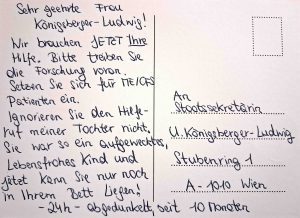 Sehr geehrte Frau
Königsberger-Ludwig!
Wir brauchen JETZT Ihre
Hilfe. Bitte treiben Sie
die Forschung voran.
Setzen Sie sich für ME/CFS
Patienten ein.
Ignorieren Sie den Hilfe-
ruf meiner Tochter nicht.
Sie war so ein aufgewecktes,
Lebensfrohes Kind und
jetzt kann Sie nur noch
in Ihrem Bett Liegen!
- 24h - abgedunkelt, seit 10 Monaten
An
Staatssekretärin
U. Königsberger-Ludwig
Stubenring 1
A-1010 Wien